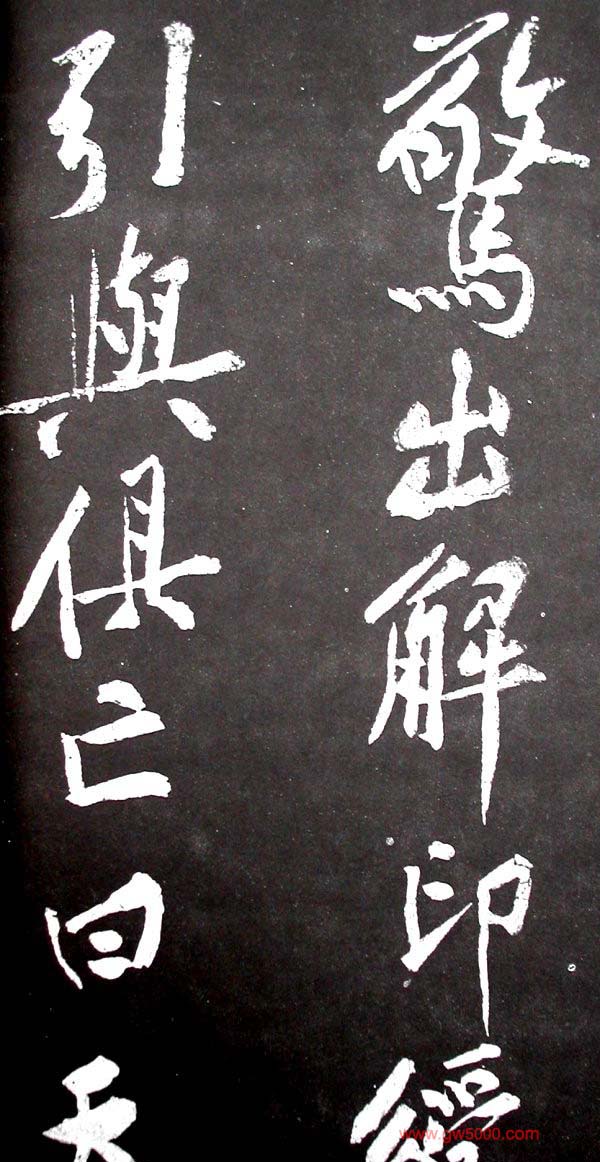 驚出解印綬
引與俱亡曰天
www.gw5000.com